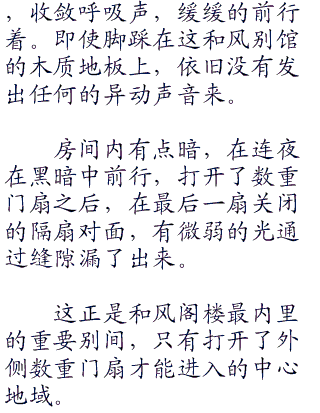 ，收敛呼吸声，缓缓的前行
着。即使脚踩在这和风别馆
的木质地板上，依旧没有发
出任何的异动声音来。
房间内有点暗，在连夜
在黑暗中前行，打开了数重
门扇之后，在最后一扇关闭
的隔扇对面，有微弱的光通
过缝隙漏了出来。
这正是和风阁楼最内里
的重要别间，只有打开了外
侧数重门扇才能进入的中心
地域。